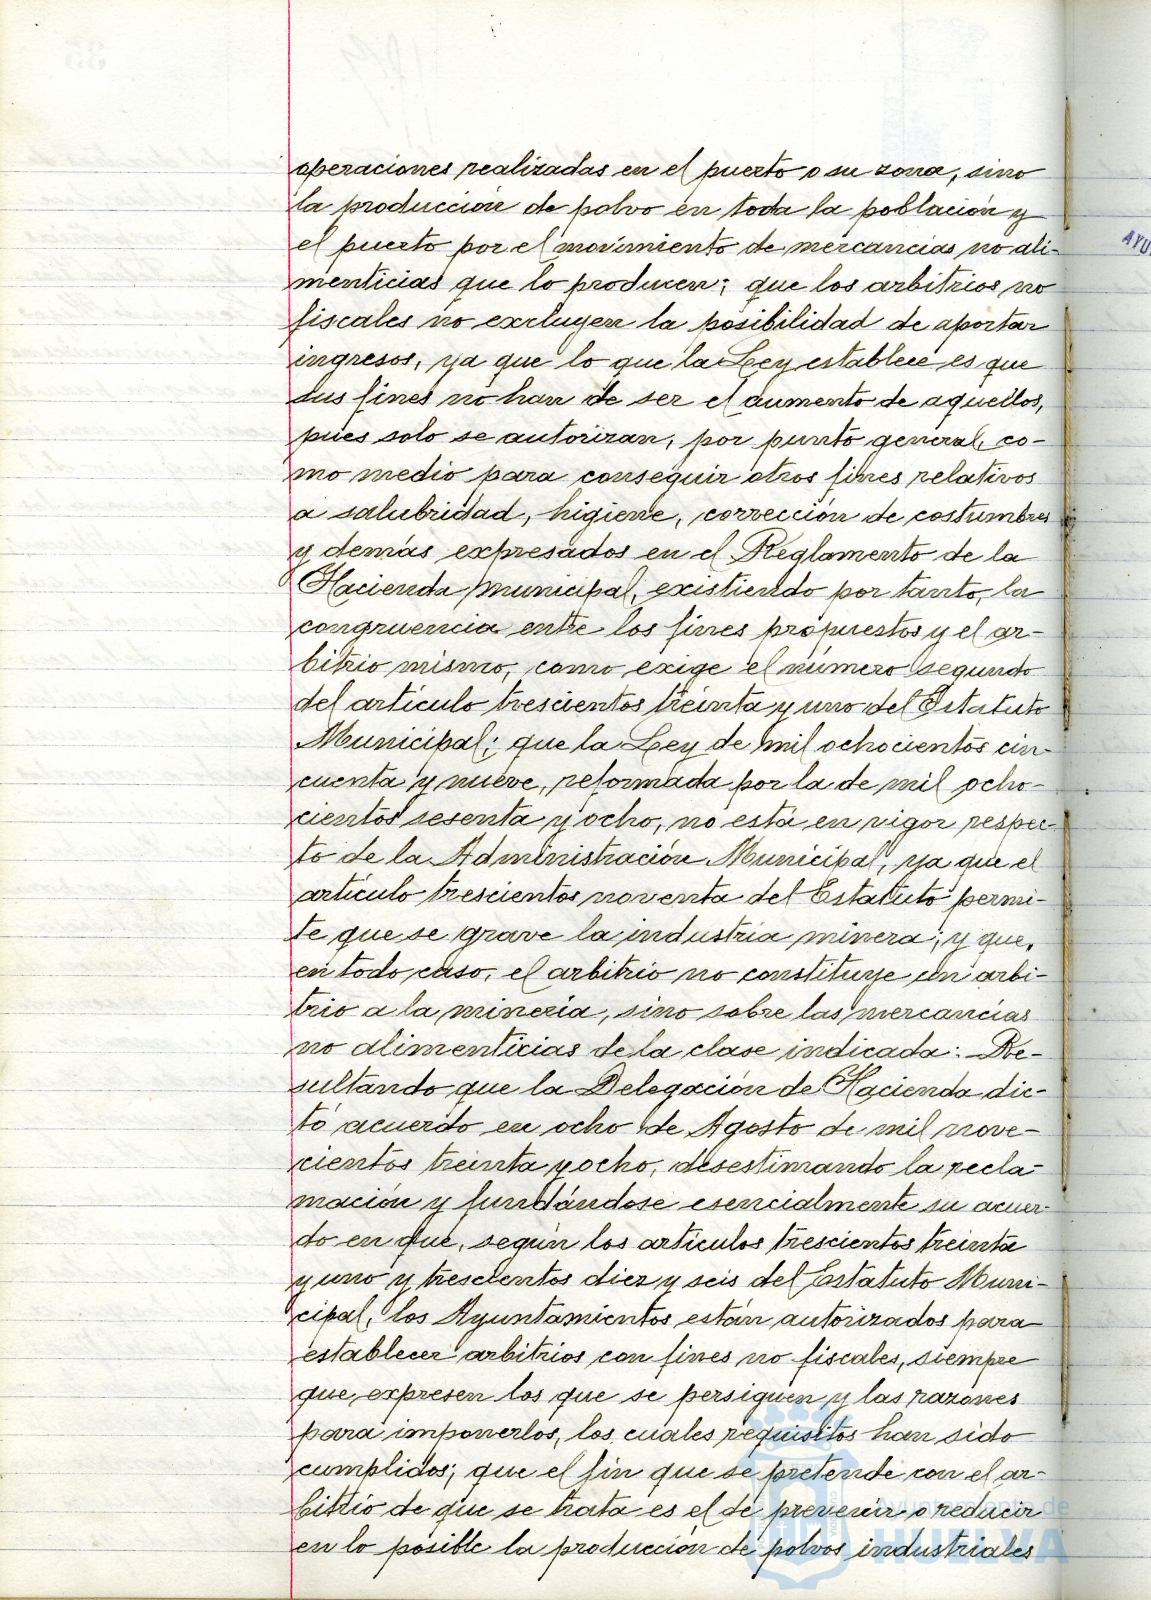 operaciones realizadas en el puerto o su zona, sino
la producción de polvo en toda la población y
el puerto por el movimiento de mercancías no ali-
menticias que lo producen; que los arbitrios no
fiscales no excluyen la posibilidad de aportar
ingresos, ya que lo que la Ley establece es que
sus fines no han de ser el aumento de aquellos,
pues solo se autorizan, por punto general, co-
mo medio para conseguir otros fines relativos
a salubridad, higiene, corrección de costumbres
y demás expresados en el Reglamento de la
Hacienda municipal, existiendo por tanto, la
congruencia entre los fines propuestos y el ar-
bitrio mismo, como exige el número segundo
del artículo trescientos treinta y uno del Estatuto
Municipal; que la Ley de mil ochocientos cin-
cuenta y nueve, reformada por la de mil ocho-
cientos sesenta y ocho, no está en vigor respec-
to de la Administración Municipal, ya que el
artículo trescientos noventa del Estatuto permi-
te que se grave la industria minera; y que,
en todo caso, el arbitrio no constituye un arbi-
trio a la minería, sino sobre las mercancías
no alimenticias de la clase indicada: Re-
sultando que la Delegación de Hacienda dic-
tó acuerdo en ocho de Agosto de mil nove-
cientos treinta y ocho, desestimando la recla-
mación y fundándose esencialmente su acuer-
do en que, según los artículos trescientos treinta
y uno y trescientos diez y seis del Estatuto Muni-
cipal, los Ayuntamientos están autorizados para
establecer arbitrios con fines no fiscales, siempre
que expresen los que se persiguen y las razones
para imponerlos, los cuales requisitos han sido
cumplidos; que el fin que se pretende con el ar-
bitrio de que se trata es el de prevenir o reducir
en lo posible la producción de polvos industriales
AYU
Ayuntamiento de
HUELVA